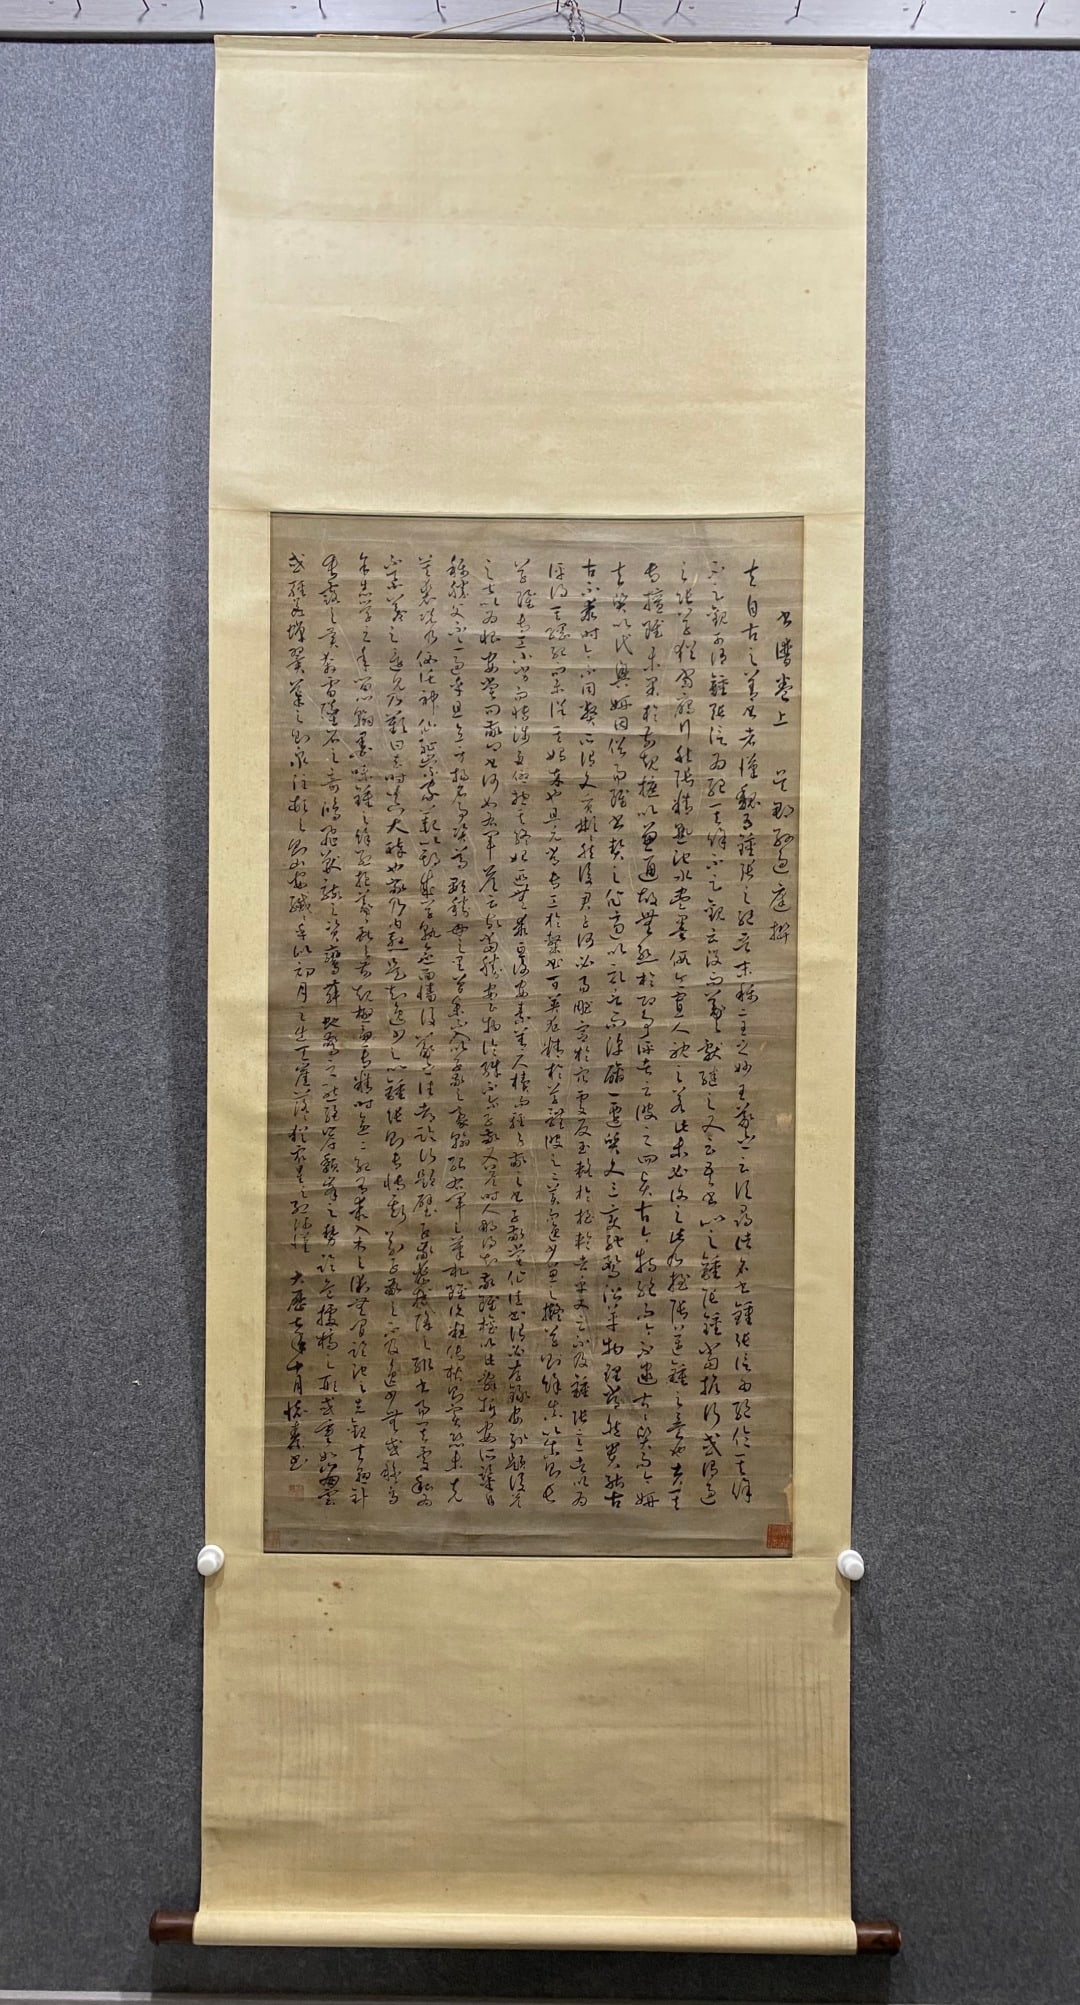 書譜卷上 吳郡孫過庭撰
夫自古之善書者漢魏有鍾張之絕晉末稱二王之妙王羲之云頃尋諸名書鍾張信為絕倫其餘
不足觀可謂鍾張信為絕其餘不足觀云沒而羲獻繼之又云吾書比之鍾張鍾當抗行或謂過
之張草猶當雁行然張精熟池水盡墨假令寡人耽之若此未必謝之此乃推張邁鍾之意也考其
專擅雖未果於前規摭以兼通故無慚於即事評者云彼之四賢古今特絕而今不逮古古質而今妍
夫質以代興妍因俗易雖書契之作適以記言而淳醨一遷質文三變馳騖沿革物理常然貴能古
古不乖時今不同弊所謂文質彬彬然後君子何必易雕宮於穴處反玉輅於椎輪者乎又云不及鍾張意者以為
評得其綱紀而未詳其始卒也且元常專工於隸書百英尤精於草體彼之二美逸少兼之擬草則餘真比真則長
草雖專工小劣而博涉多優總其終始匪無乖互謝安素善尺牘而輕子敬之書子敬嘗作佳書謂必存錄安輒題後答
之甚以為恨安嘗問敬卿書何如右軍答云故當勝安云物論殊不爾子敬又答時人那得知敬雖權以此辭折安所鑒自
稱勝父不亦過乎且立身揚名事資尊顯勝母之里曾參不入以子敬之豪翰紹右軍之筆札雖復粗傳楷則實恐未克
箕裘況乃假託神仙恥崇家範以斯成學孰愈面牆後羲之往都臨行題壁子敬密拭除之輒書易其處私為
不惡羲之還見乃歎曰吾去時真大醉也敬乃內慚是知逸少之比鍾張則專博斯別子敬之不及逸少無或疑焉
余志學之年留心翰墨味鍾張之餘烈挹羲獻之前規極慮專精時逾二紀有乖入木之術無間臨池之志觀夫懸針
垂露之異奔雷墜石之奇鴻飛獸駭之資鸞舞蛇驚之態絕岸頹峰之勢臨危據槁之形或重如崩雲
或輕若蟬翼導之則泉注頓之則山安纖乎似初月之出天崖落於眾星之列河漢 大曆七年十月懷素書